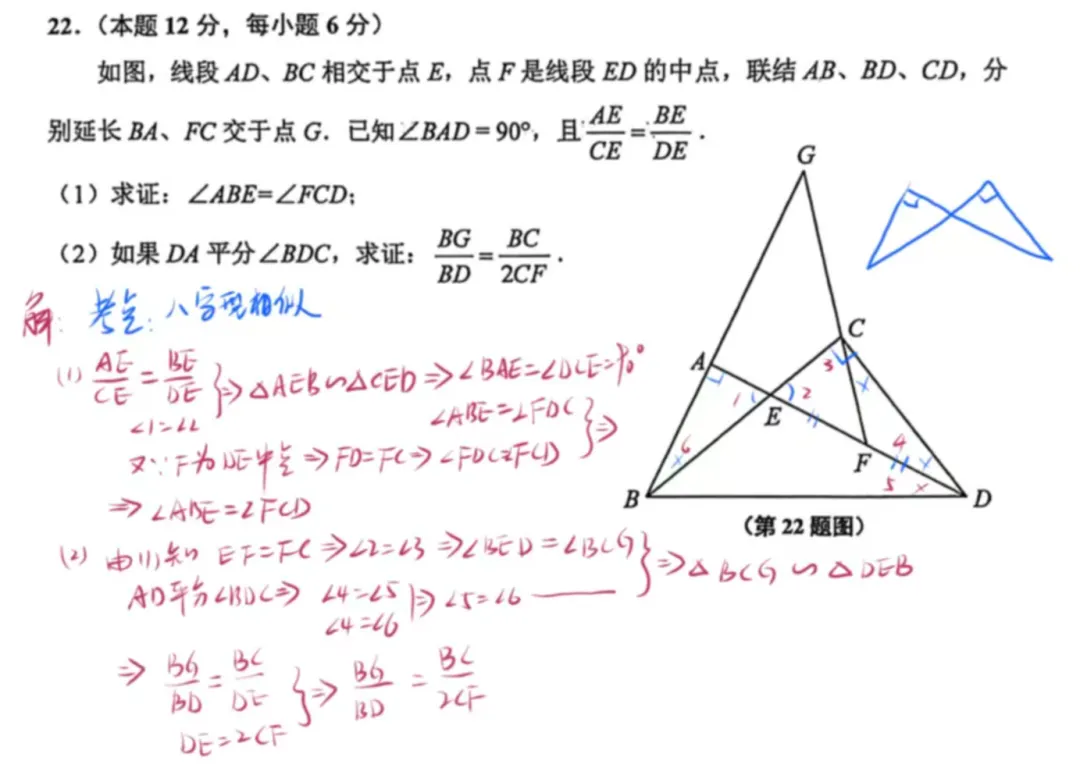 22.（本题 12 分，每小题 6 分）
如图，线段 AD、BC 相交于点 E，点 F 是线段 ED 的中点，联结 AB、BD、CD，分
别延长 BA、FC 交于点 G．已知∠BAD = 90°，且 AE/CE = BE/DE．
（1）求证：∠ABE=∠FCD；
（2）如果 DA 平分∠BDC，求证：BG/BD = BC/2CF．
解：考点：八字型相似
(1) AE/CE = BE/DE
∠1=∠2
} ⇒ △AEB∽△CED ⇒ ∠BAE=∠DCE=90°
∠ABE=∠FDC
又∵F为DE中点 ⇒ FD=FC ⇒ ∠FDC=∠FCD
} ⇒
⇒ ∠ABE=∠FCD
(2) 由(1)知 EF=FC ⇒ ∠2=∠3 ⇒ ∠BED=∠BCG
AD平分∠BDC ⇒ ∠4=∠5
∠4=∠6
⇒ ∠5=∠6
} ⇒ △BCG∽△DEB
⇒ BG/BD = BC/DE
DE=2CF
} ⇒ BG/BD = BC/2CF
G
A
C
3
1
2
E
6
F
4
5
B
D
（第 22 题图）